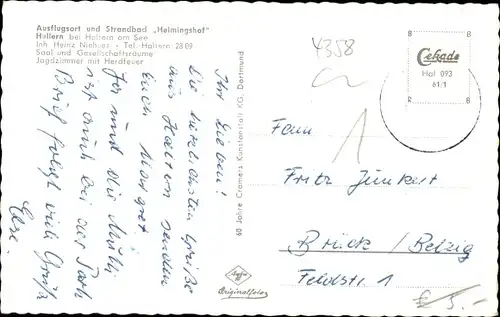 Ausflugsort und Strandbad „Heimingshof"
Hallern bei Haltern am See
Inh. Heinz Niehues - Tel. Haltern 2809
Saal und Gesellschaftsräume
Jagdzimmer mit Herdfeuer
Ihr Lieben!
Die herzlichsten Grüße
aus Haltern senden
Euch Margret
und die Mutti
auch bei der Post
Brief folgt viele Grüße
Else.
60 Jahre Cramers Kunstanstalt KG, Dortmund
4358
B B
Cekade
Hal 093
61/1
R B
1
Fam
Fritz Junkert
Brück / Belzig
Feldstr. 1
Agfa
Originalfoto
€ 3.-